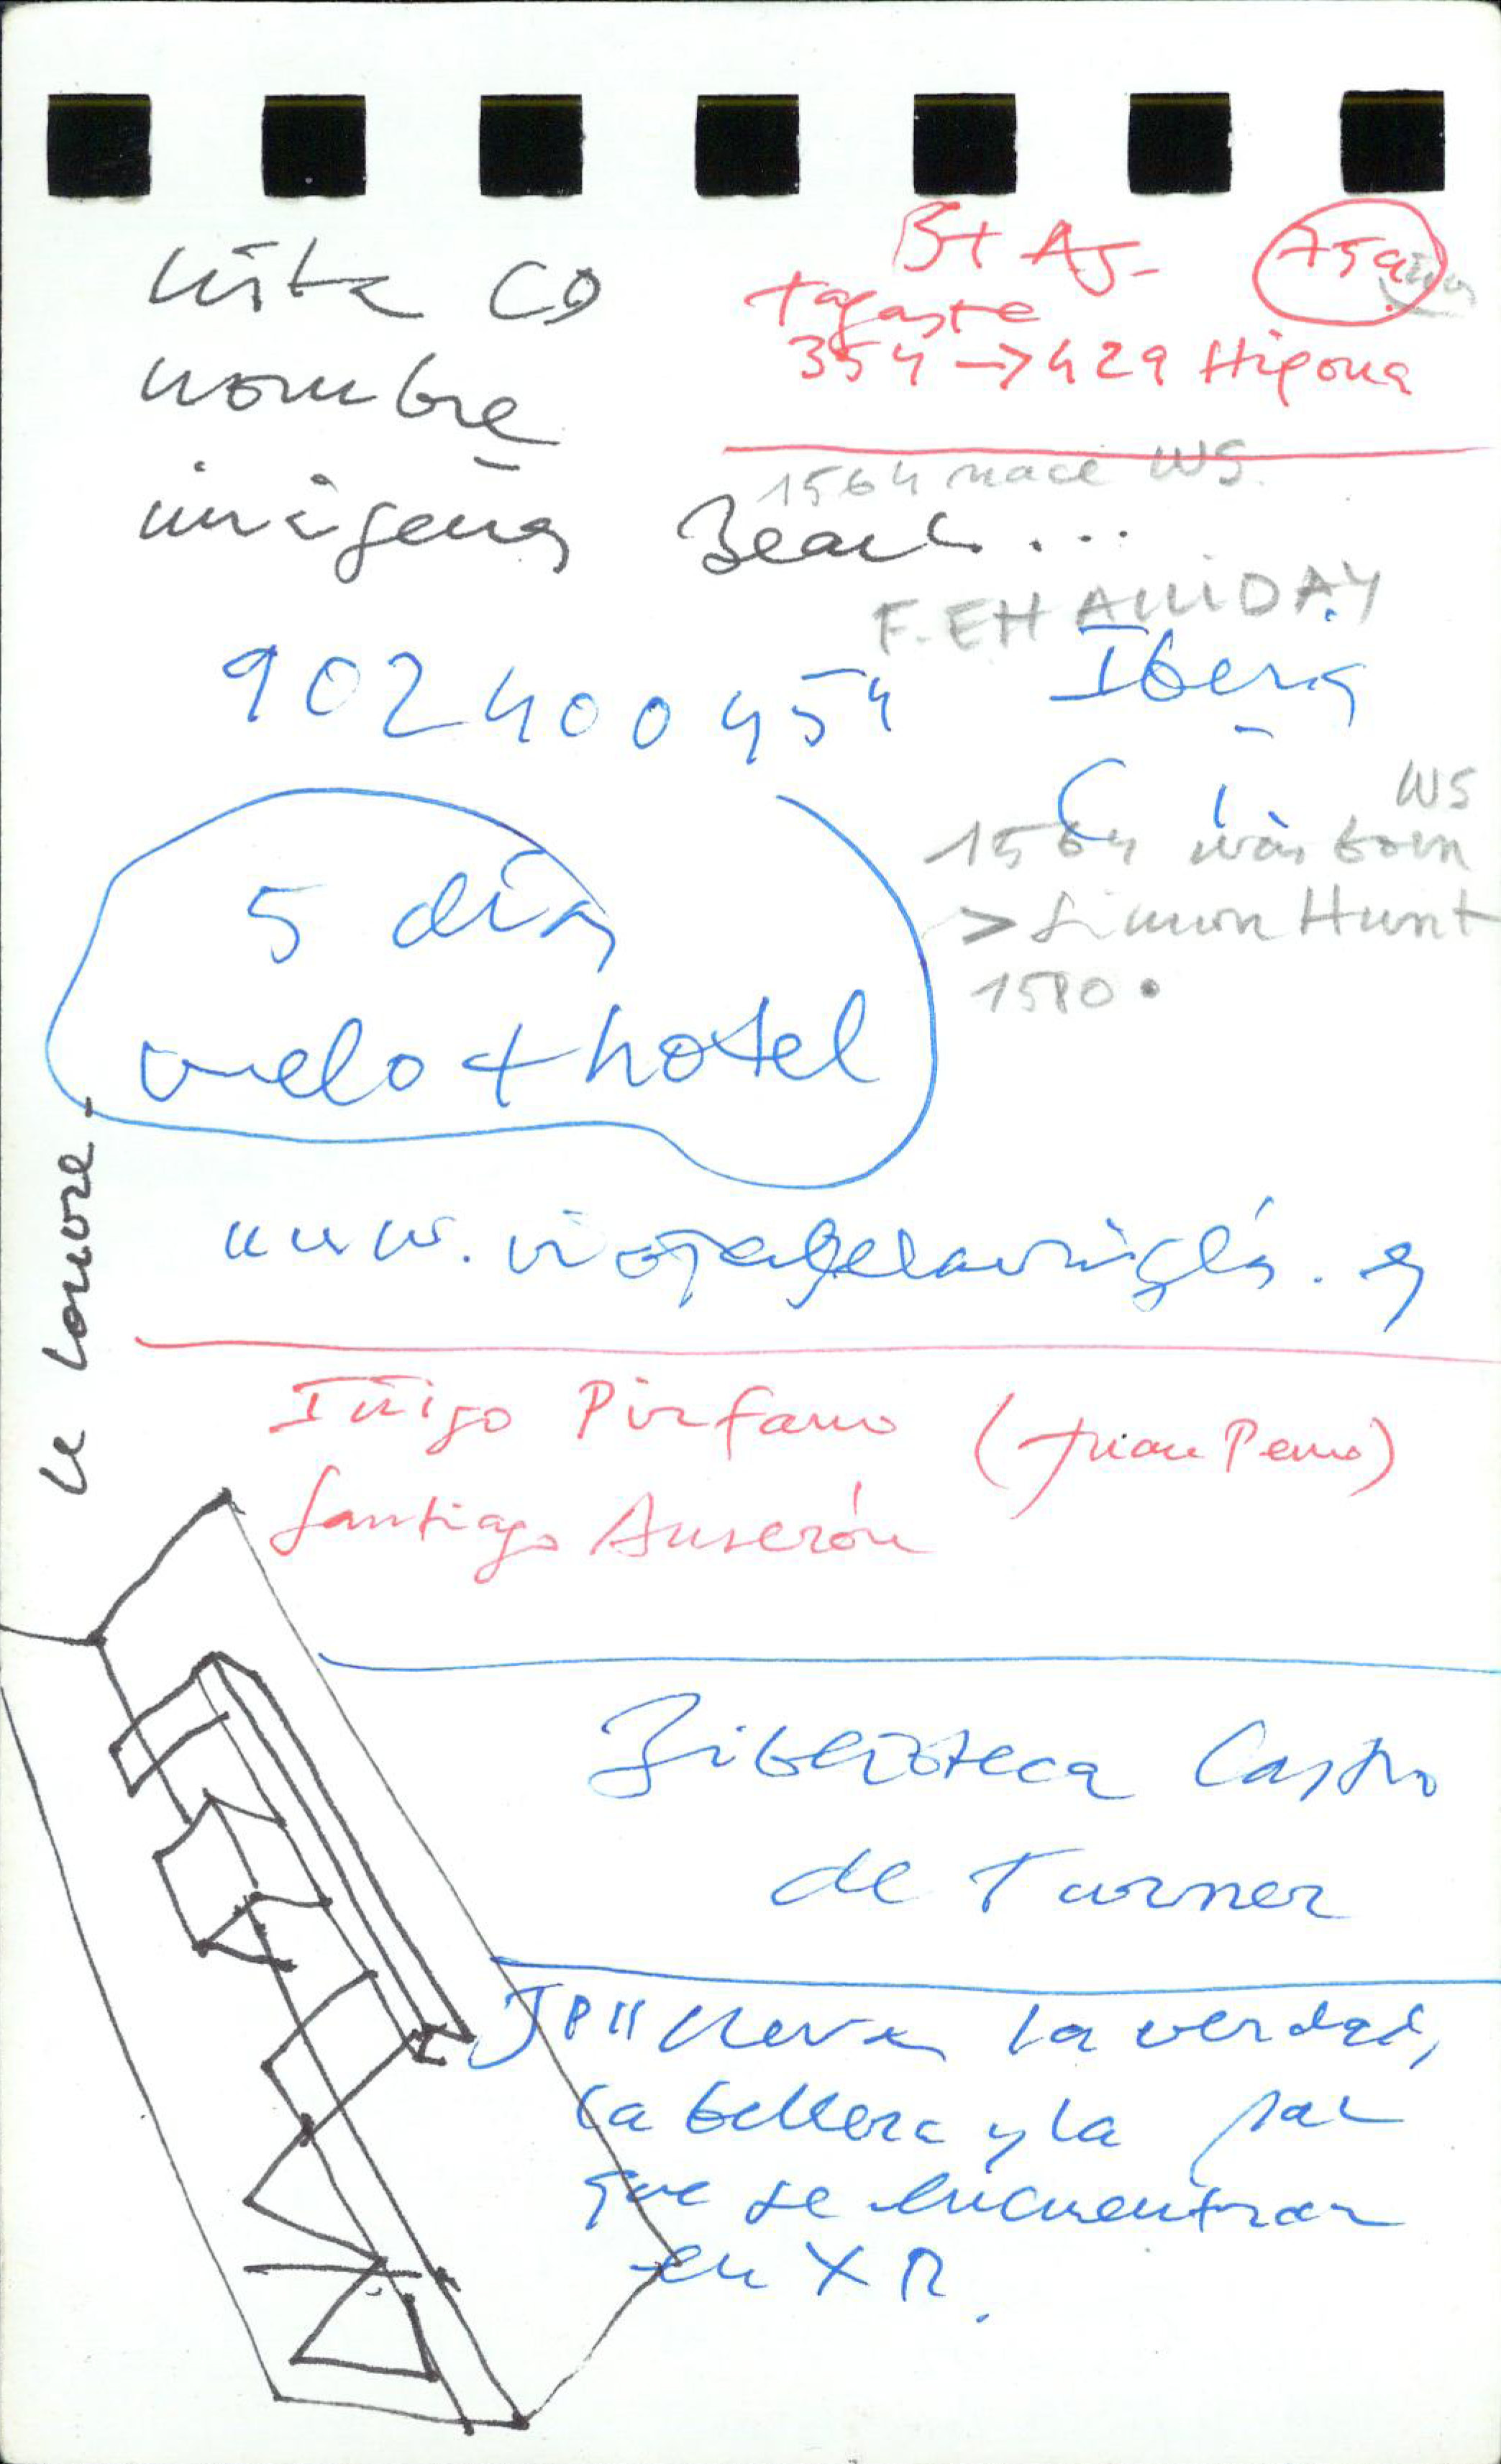 lista CD
nombre
imágenes Beach...
St Ag- 75 años
Tagaste
354 → 429 Hipona
1564 nace WS.
F. E HALLIDAY
902400454 Iberia
WS
1564 was born
> Simon Hunt
1580.
5 días
vuelo + hotel
le Louvre.
Iñigo Pirfano (Juan Perro)
Santiago Auserón
Biblioteca Castro
de Turner
JPII lleva la verdad,
la belleza y la paz
que se encuentran
en X R.